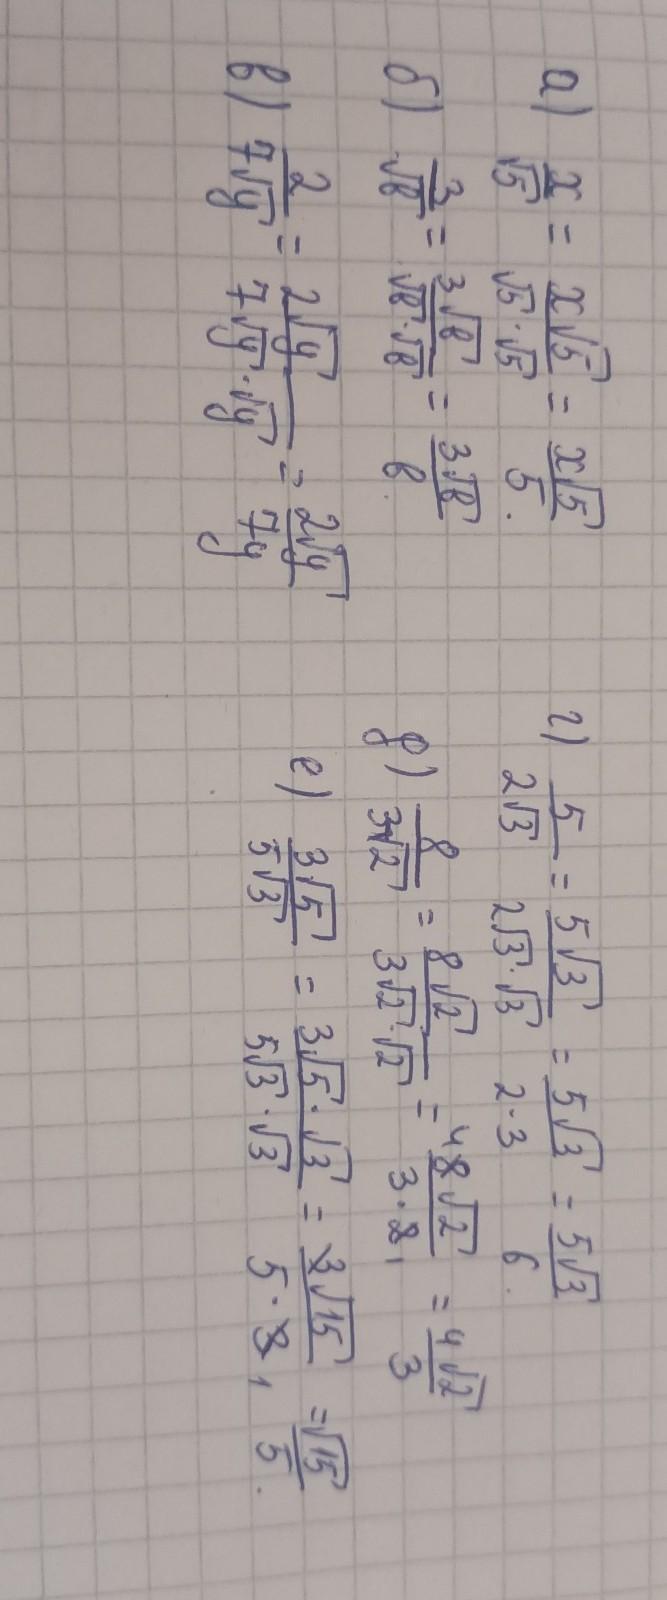 а) x/√5 = x√5/√5·√5 = x√5/5.
б) 3/√b = 3√b/√b·√b = 3√b/b.
в) 2/7√y = 2√y/7√y·√y = 2√y/7y
г) 5/2√3 = 5√3/2√3·√3 = 5√3/2·3 = 5√3/6.
д) 8/3√2 = 8√2/3√2·√2 = 4 8√2/3·2 1 = 4√2/3
е) 3√5/5√3 = 3√5·√3/5√3·√3 = 3√15/5·3 1 = √15/5.